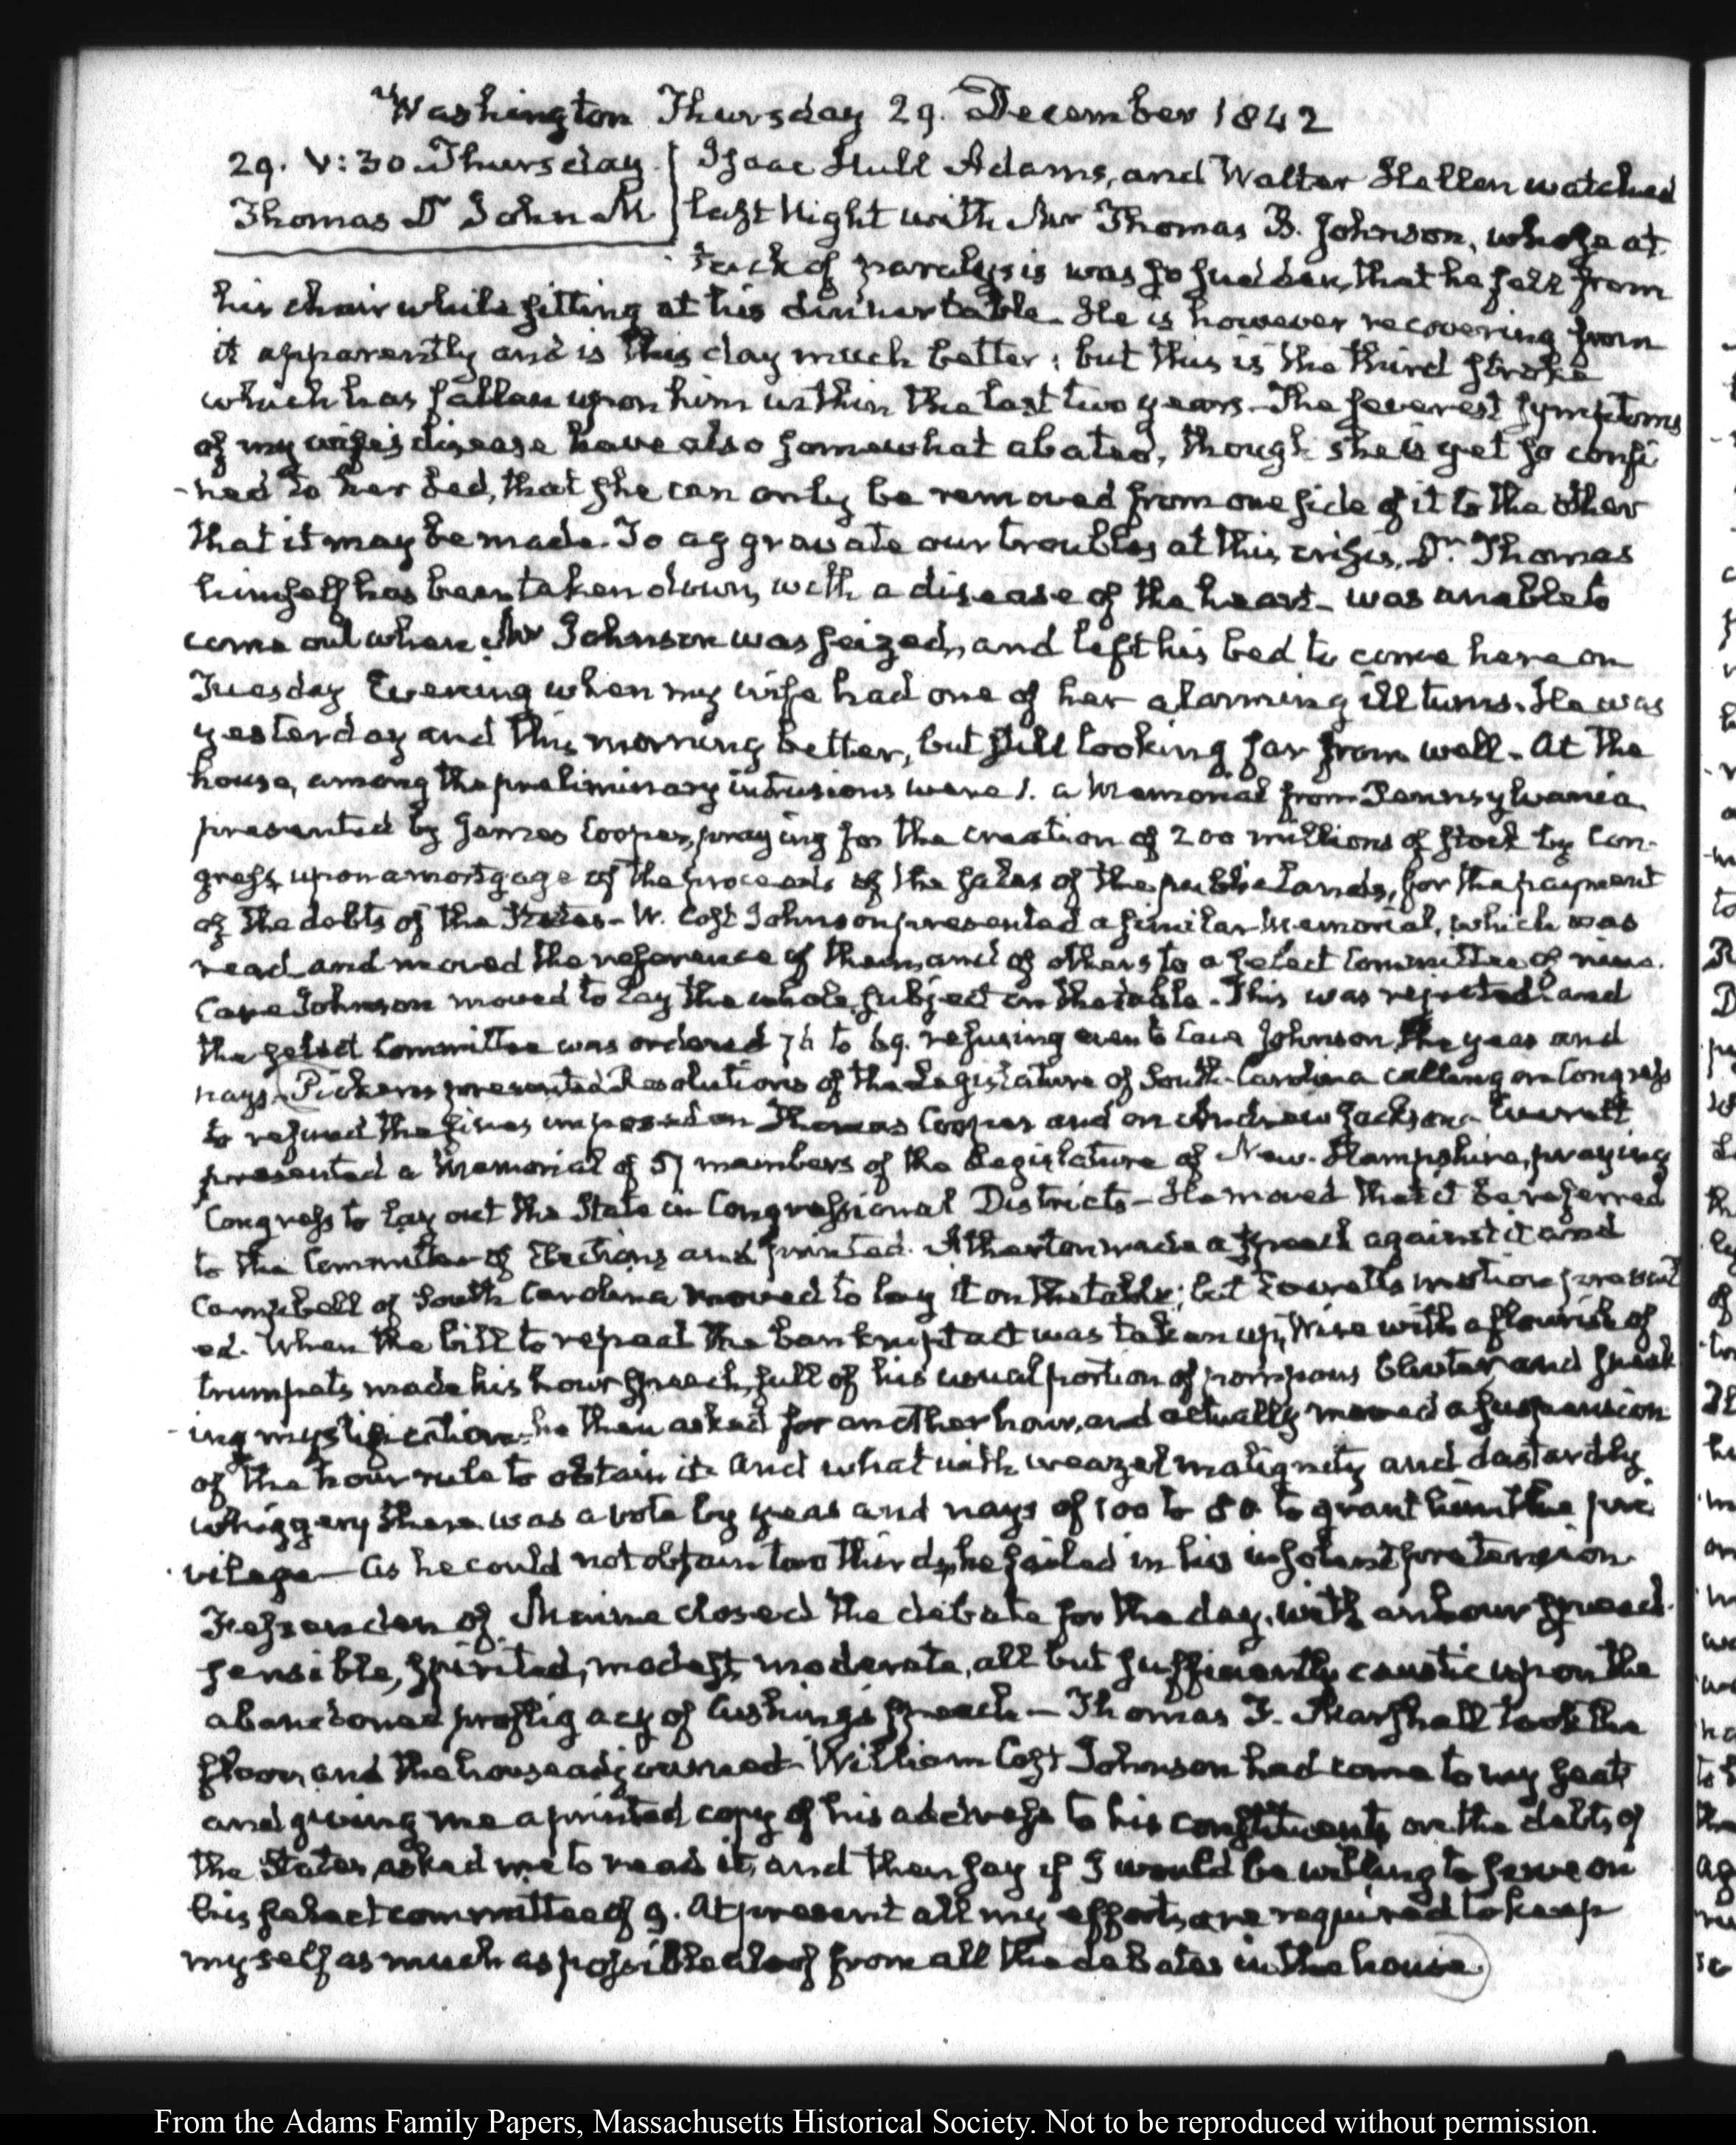 Washington Thursday 29. December 1842
29. V:30. Thursday. Isaac Hull Adams, and Walter Hellen watched
Thomas Dr John M last Night with Mr Thomas B. Johnson, whose at
tack of paralysis was so sudden, that he fell from
his chair while sitting at his dinner table. He is however recovering from
it apparently and is this day much better; but this is the third stroke
which has fallen upon him within the last two years. The severest symptoms
of my wife's disease have also somewhat abated, though she is yet so confi
-ned to her bed, that she can only be removed from one side of it to the other
that it may be made. To aggravate our troubles at this crisis, Dr. Thomas
himself has been taken down, with a disease of the heart - was unable to
come out when Mr Johnson was seized, and left his bed to come here on
Tuesday Evening when my wife had one of her alarming ill turns. He was
yesterday and this morning better, but still looking far from well - At the
house, among the preliminary intrusions were 1. a Memorial from Pennsylvania
presented by James Cooper, praying for the creation of 200 millions of stock by Con-
gress, upon a mortgage of the proceeds of the sales of the public lands, for the payment
of the debts of the States - W. Cost Johnson presented a similar Memorial, which was
read and moved the reference of them, and of others to a select Committee of nine.
Cave Johnson moved to lay the whole subject on the table. This was rejected and
the select Committee was ordered to 69. refusing even to Cave Johnson the yeas and
nays. Pickens presented Resolutions of the Legislature of South-Carolina calling on Congress
to refund the fines imposed on Thomas Cooper and on Andrew Jackson - Everett
presented a Memorial of 57 members of the Legislature of New-Hampshire, praying
Congress to lay out the State in Congressional Districts - He moved that it be referred
to the Committee of Elections and printed. Atherton made a speech against it and
Campbell of South Carolina moved to lay it on the table; but Everett's motion prevail
ed. When the bill to repeal the bankrupt act was taken up, Wise with a flourish of
trumpets made his hour speech, full of his usual portion of pompous bluster, and
-ing mystification. he then asked for another hour, and actually moved a suspension
of the hour rule to obtain it. And what with weazel malignity and dastardly
whiggery there was a vote by yeas and nays of 100 to 80 to grant him the pri
vilege - As he could not obtain two thirds, he failed in his insolent pretension.
Fessenden of Maine closed the debate for the day, with an hour speech.
sensible, spirited, modest, moderate, all but sufficiently caustic upon the
abandoned profligacy of Cushing's speech - Thomas F. Marshall took the
floor, and the house adjourned - William Cost Johnson had come to my seat
and giving me a printed copy of his address to his constituents on the debts of
the States, asked me to read it, and then say if I would be willing to serve on
his select committee of 9. At present all my efforts are required to keep
myself as much as possible aloof from all the debates in the house
From the Adams Family Papers, Massachusetts Historical Society. Not to be reproduced without permission.